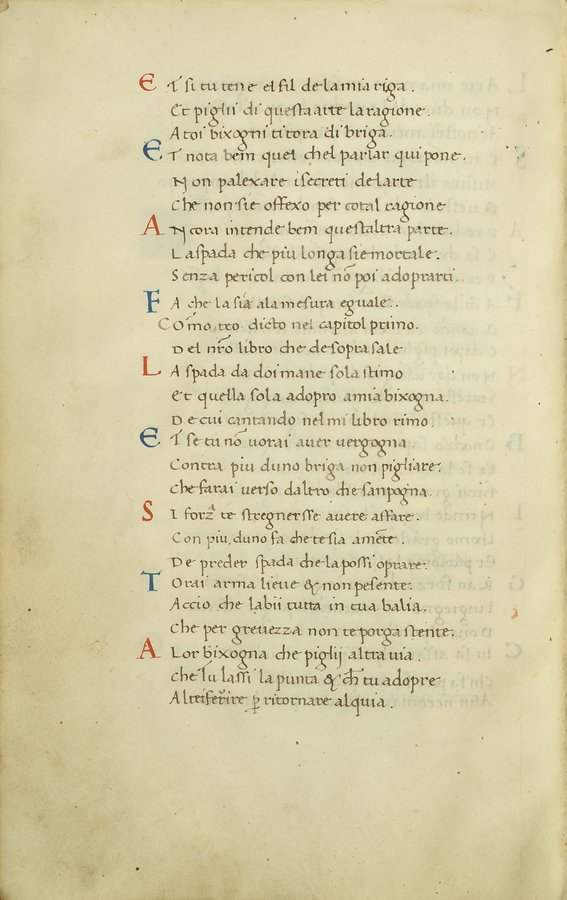 ET si tu tene el fil de la mia riga.
Et piglii di questa arte la ragione.
A toi bixogni ti tora di briga.
ET nota bem quel chel parlar qui pone.
Non palexare i secreti delarte
Che non sie offexo per cotal cagione
ANcora intende bem questaltra parte.
La spada che piu longa sie mortale.
Senza pericol con lei nō poi adoprarti.
FA che la sia ala mesura eguale.
COmo, teo dicto nel capitol primo.
Del nr̄o libro che de sopra sale
LA spada da doi mane sola stimo
Et quella sola adopro a mia bixogna.
De cui cantando nel mi libro rimo.
ET se tu nō vorai aver vergogna.
Contra piu duno briga non pigliare.
Che farai verso daltro che sanpogna
SI forza te stregnersse avere affare.
Con piu, duno fa che te sia a mēte.
De preder spada che la possi oprare.
TOrai arma lieve & non pesente.
Accio che labii tutta in tua balia.
Che per grevezza non te porga stente.
ALor bixogna che piglij altra via.
che tu lassi la punta & ch̄ tu adopre
Altri ferire ꝑ ritornare al quia.